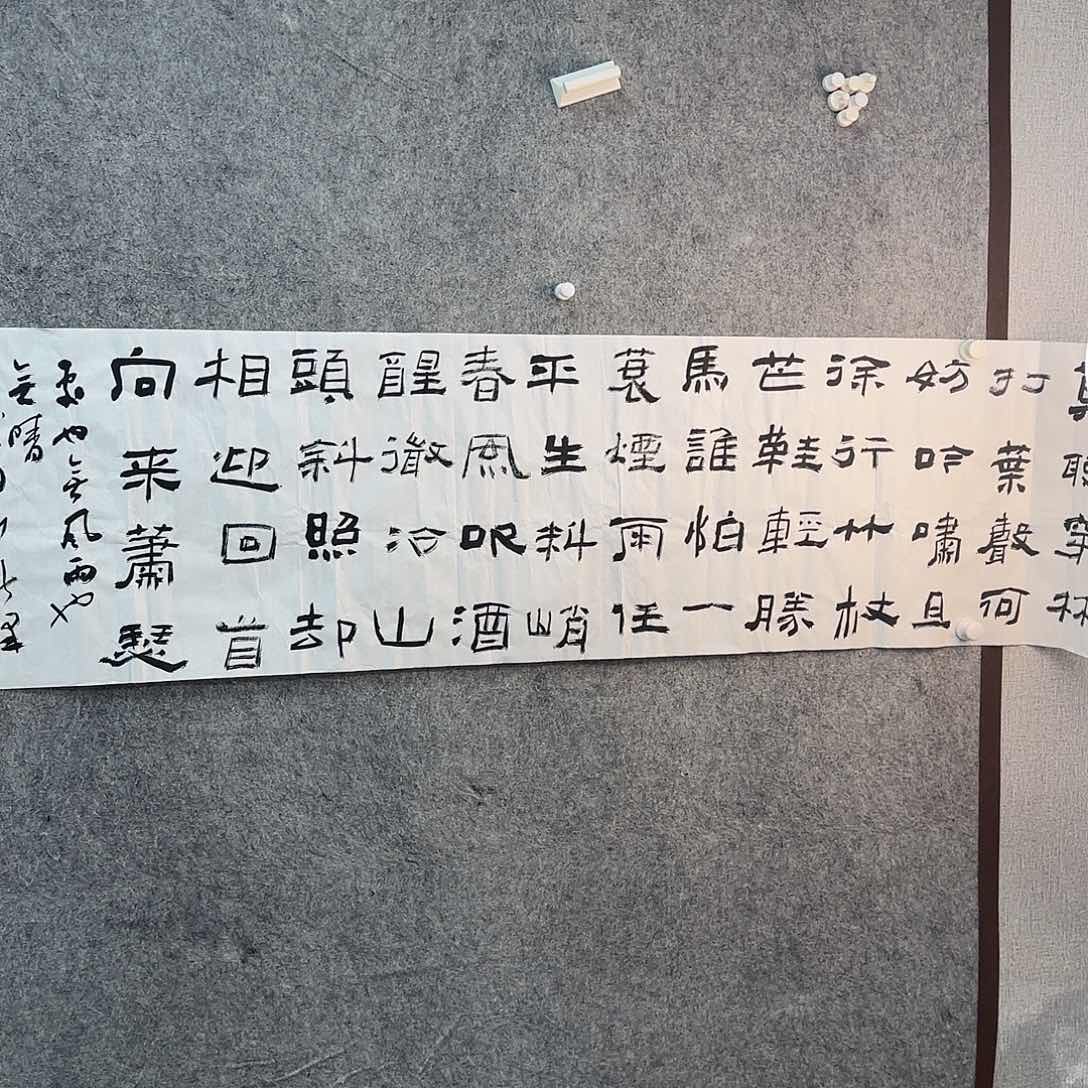 聽穿林
打葉聲何
妨吟嘯且
徐行竹杖
芒鞋輕勝
馬誰怕一
蓑煙雨任
平生料峭
春風吹酒
醒微冷山
頭斜照却
相迎回首
向来蕭瑟
處也無風雨也
無晴